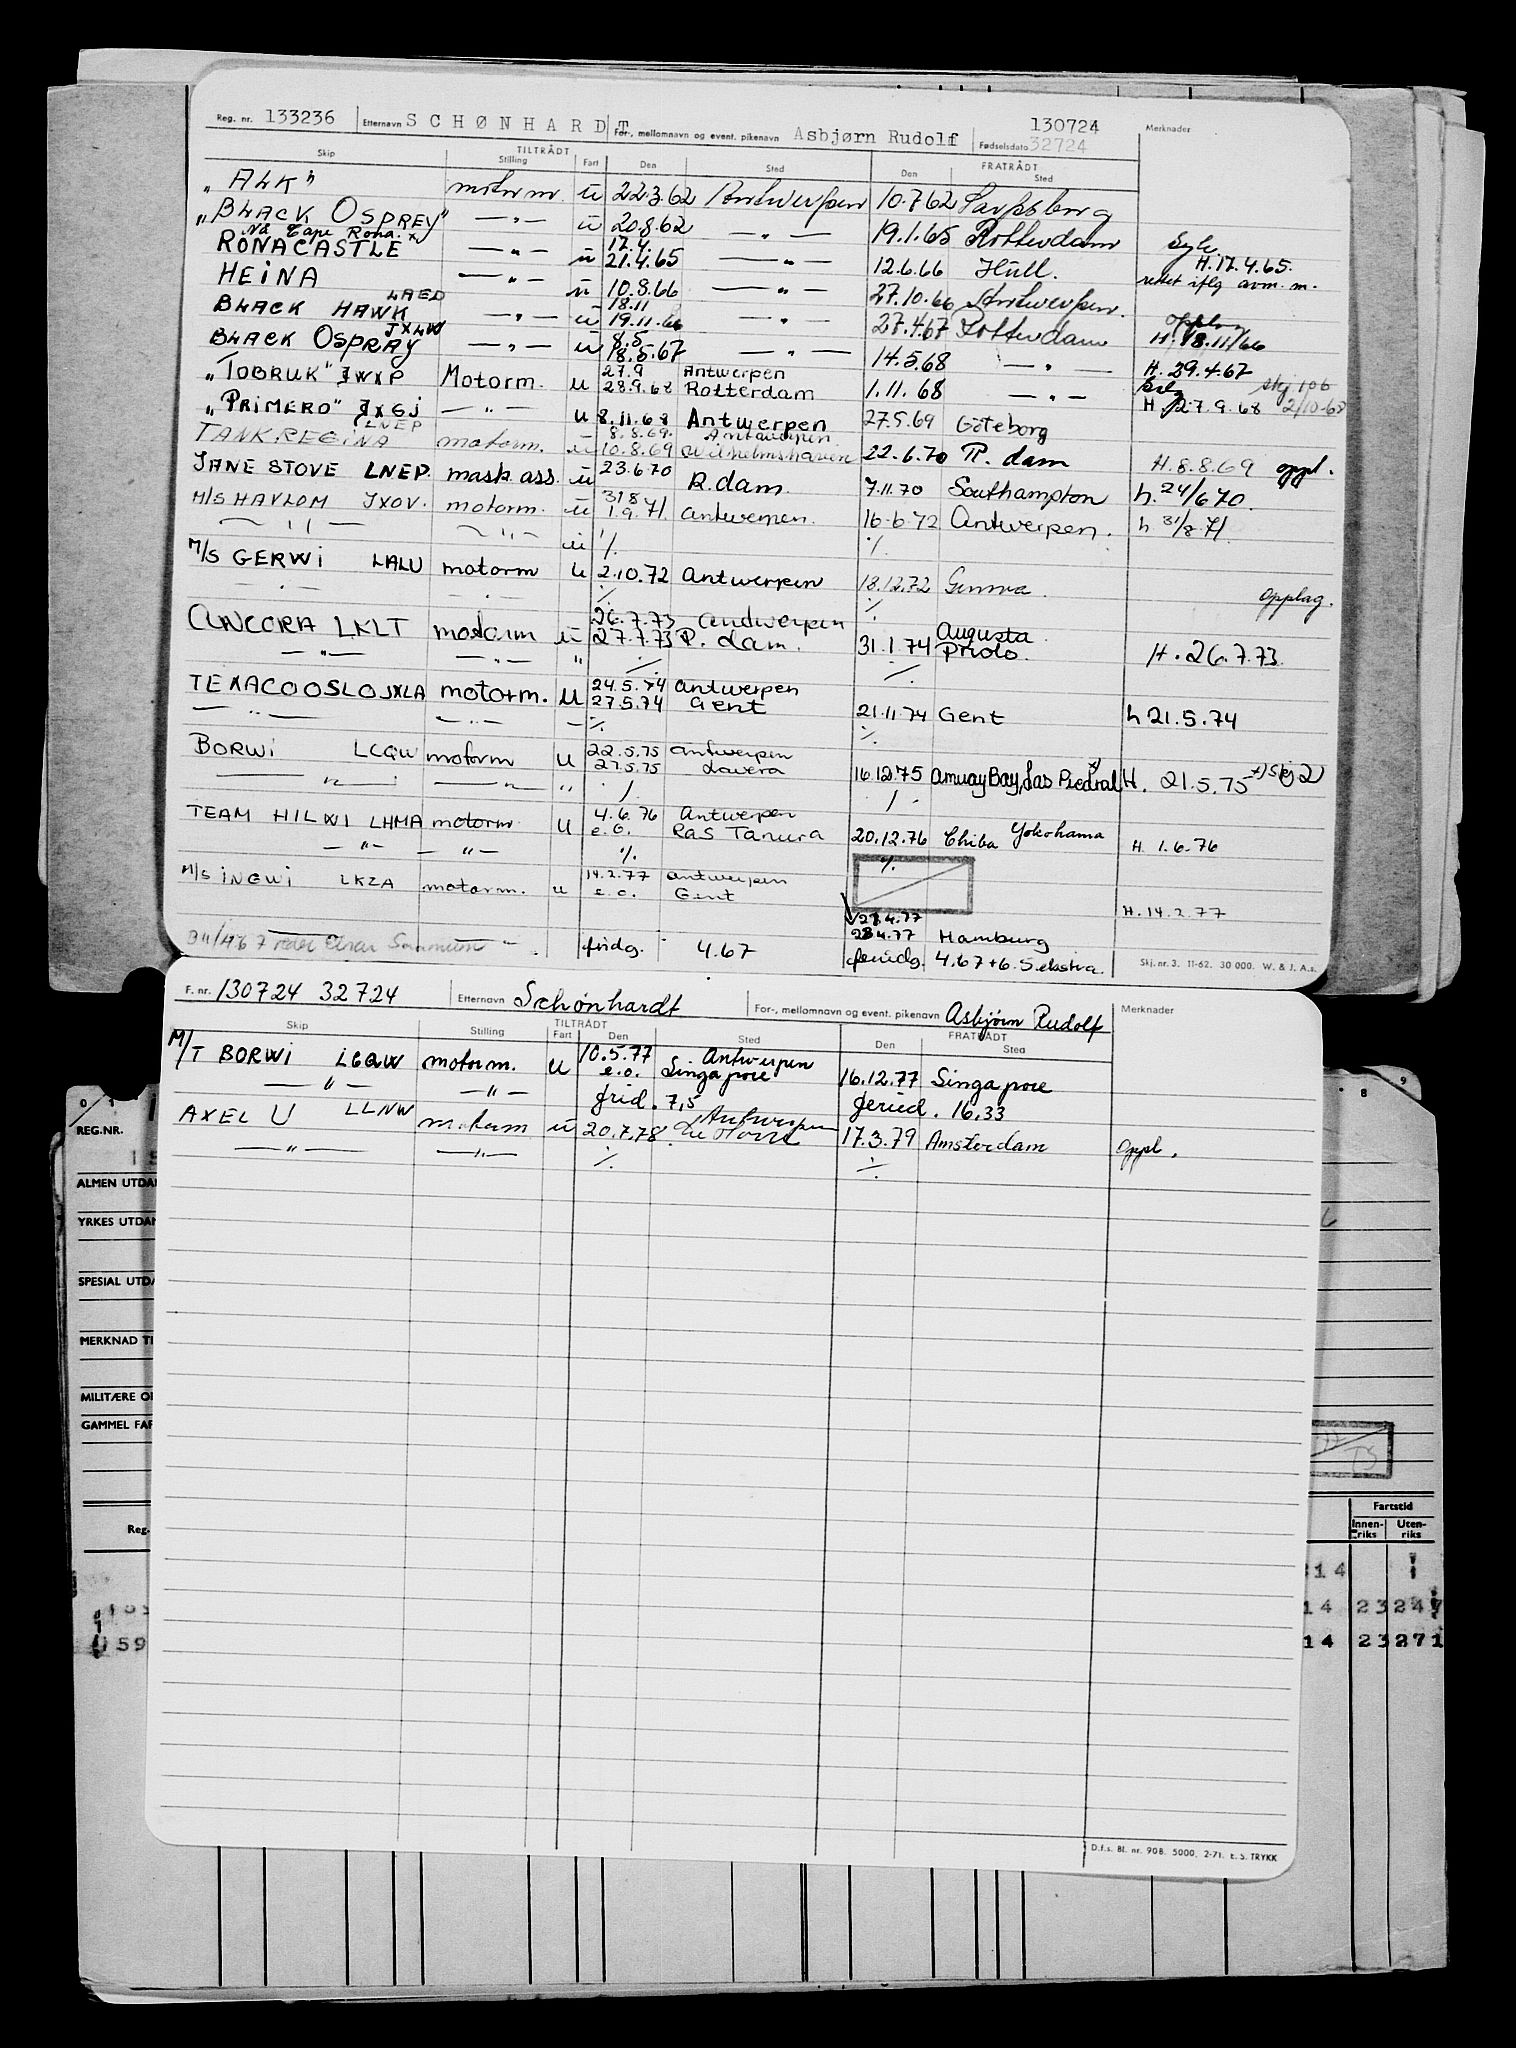 Reg. nr. 133236 Etternavn SCHØNHARDT For-, mellomnavn og event. pikenavn Asbjørn Rudolf Fødselsdato 130724 32724 Merknader
Skip TILTRÅDT Stilling Fart Den Sted FRATRÅDT Den Sted
"ALK" motorm. u 22.3.62 Antwerpen 10.7.62 Sarpsborg
"BLACK OSPREY" —"— u 20.8.62 —"— 19.1.65 Rotterdam Syk.
Nå Cape Rona. x
RONACASTLE —"— u 17.4. 21.4.65 —"— 12.6.66 Hull. H.17.4.65.
HEINA —"— u 10.8.66 —"— 27.10.66 Antwerpen. rettet iflg avm. m.
BLACK HAWK LAED —"— u 18.11 19.11.66 —"— 27.4.67 Rotterdam H. 18.11/66
BLACK OSPRAY JXLW —"— u 8.5 18.5.67 —"— 14.5.68 —"— H. 29.4.67
"TOBRUK" JWXP Motorm. u 27.9 28.9.68 Antwerpen Rotterdam 1.11.68 —"— H. 27.9.68 skj 106 2/10-68
"PRIMERO" JXGJ —"— u 8.11.68 Antwerpen 27.5.69 Göteborg
TANK REGINA LNEP motorm. u 8.8.69. 10.8.69 Antwerpen Wilhelmshaven 22.6.70 R. dam H.8.8.69 oppl.
JANE STOVE LNEP. mask.ass. u 23.6.70 R.dam. 7.11.70 Southampton h. 24/6 70.
M/S HAVLOM JXOV. motorm. u 31 8 1.9.71. Antwerpen. 16.6.72 Antwerpen. h 31/8-71.
—"— —"— u % %
M/S GERWI LALU motorm u 2.10.72 Antwerpen 18.12.72 Genova. Opplag.
% %
ANCORA LKLT motorm u 26.7.73 27.7.73 Antwerpen R. dam. 31.1.74 Augusta Priolo. H. 26.7.73.
—"— —"— " % %
TEXACO OSLO JXLA motorm. u 24.5.74 27.5.74 Antwerpen Gent 21.11.74 Gent h 21.5.74
—"— —"— — % %
BORWI LCQW motorm u 22.5.75 27.5.75 Antwerpen Lavera 16.12.75 Amuay Bay, Las Piedras x) H. 21.5.75 x) skj 2
—"— —"— " / /
TEAM HILWI LHMA motorm u 4.6.76 e.o. Antwerpen Ras Tanura 20.12.76 Chiba Yokohama H. 1.6.76
—"— —"— % %
M/S INGWI LKZA motorm. u 14.2.77 e.o. Antwerpen Gent 28.4.77 28.4.77 Hamburg H.14.2.77
fridg. 4.67 feriedg. 4.67+6.5 ekstra.
Skj. nr. 3. 11-62. 30 000. W. & J. A.s.
F. nr. 130724 32724 Etternavn Schønhardt For-, mellomnavn og event. pikenavn Asbjørn Rudolf Merknader
Skip Stilling TILTRÅDT Fart Den Sted FRATRÅDT Den Sted
M/T BORWI LCQW motorm. u 10.5.77 e.o. Antwerpen Singapore 16.12.77 Singapore
—"— —"— frid. 7,5 feried. 16,33
AXEL U LLNW motorm u 20.7.78 Antwerpen Le Havre 17.3.79 Amsterdam Oppl.
—"— —"— % %
D.f.s. Bl. nr. 908. 5000. 2-71. E. S. TRYKK
0 1
REG.NR.
ALMEN UTDA
YRKES UTDAN
SPESIAL UTDA
MERKNAD TI
MILITÆRE O
GAMMEL FAR
Reg-
59
8 9
Fartstid
Innen-riks Uten-riks
14
14 23 247
14 23 271